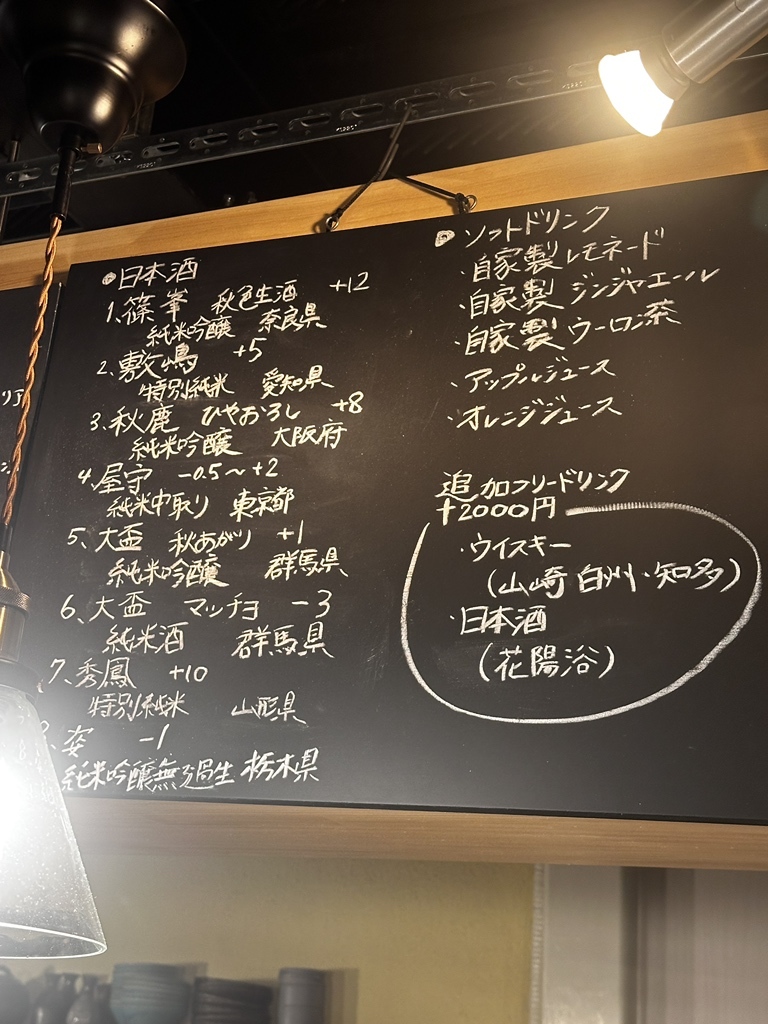 日本酒
1、篠峯 秋色生酒 +12
純米吟醸 奈良県
2、敷嶋 +5
特別純米 愛知県
3、秋鹿 ひやおろし +8
純米吟醸 大阪府
4、屋守 -0.5～+2
純米中取り 東京都
5、大盃 秋あがり +1
純米吟醸 群馬県
6、大盃 マッチョ -3
純米酒 群馬県
7、秀鳳 +10
特別純米 山形県
姿 -1
純米吟醸無過生 栃木県
ソフトドリンク
・自家製レモネード
・自家製ジンジャエール
・自家製ウーロン茶
・アップルジュース
・オレンジジュース
追加フリードリンク
+2000円
・ウイスキー
(山崎 白州・知多)
・日本酒
(花陽浴)